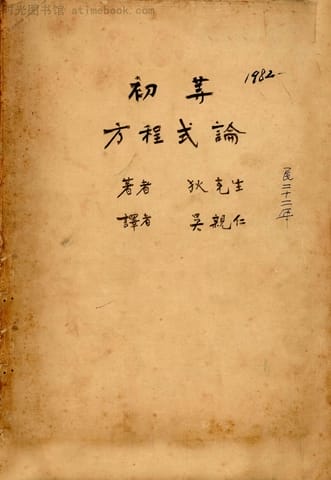 时光图书馆 atimebook.com
初等
1982-
方程式論
著者 狄克生
譯者 吳親仁
民二十二年